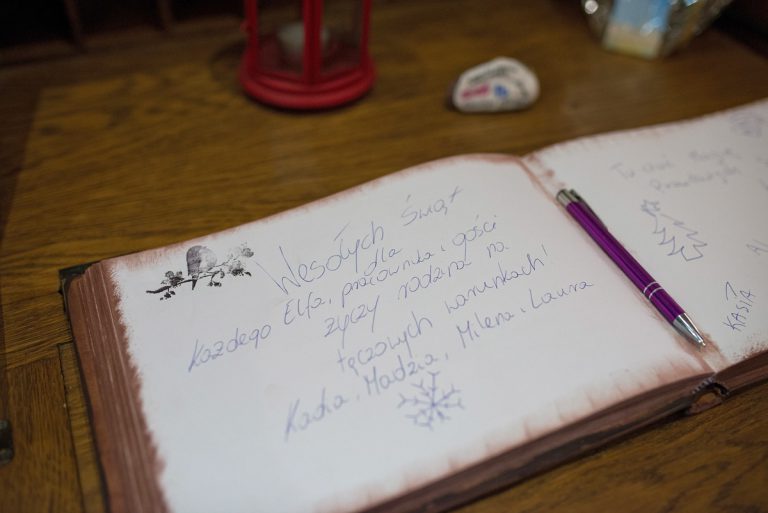 Wesołych Świąt
dla
każdego Elfa, pracownika i gości
życzy rodzina na
tęczowych warunkach!
Kacha, Madzia, Milena i Laura
KASIA